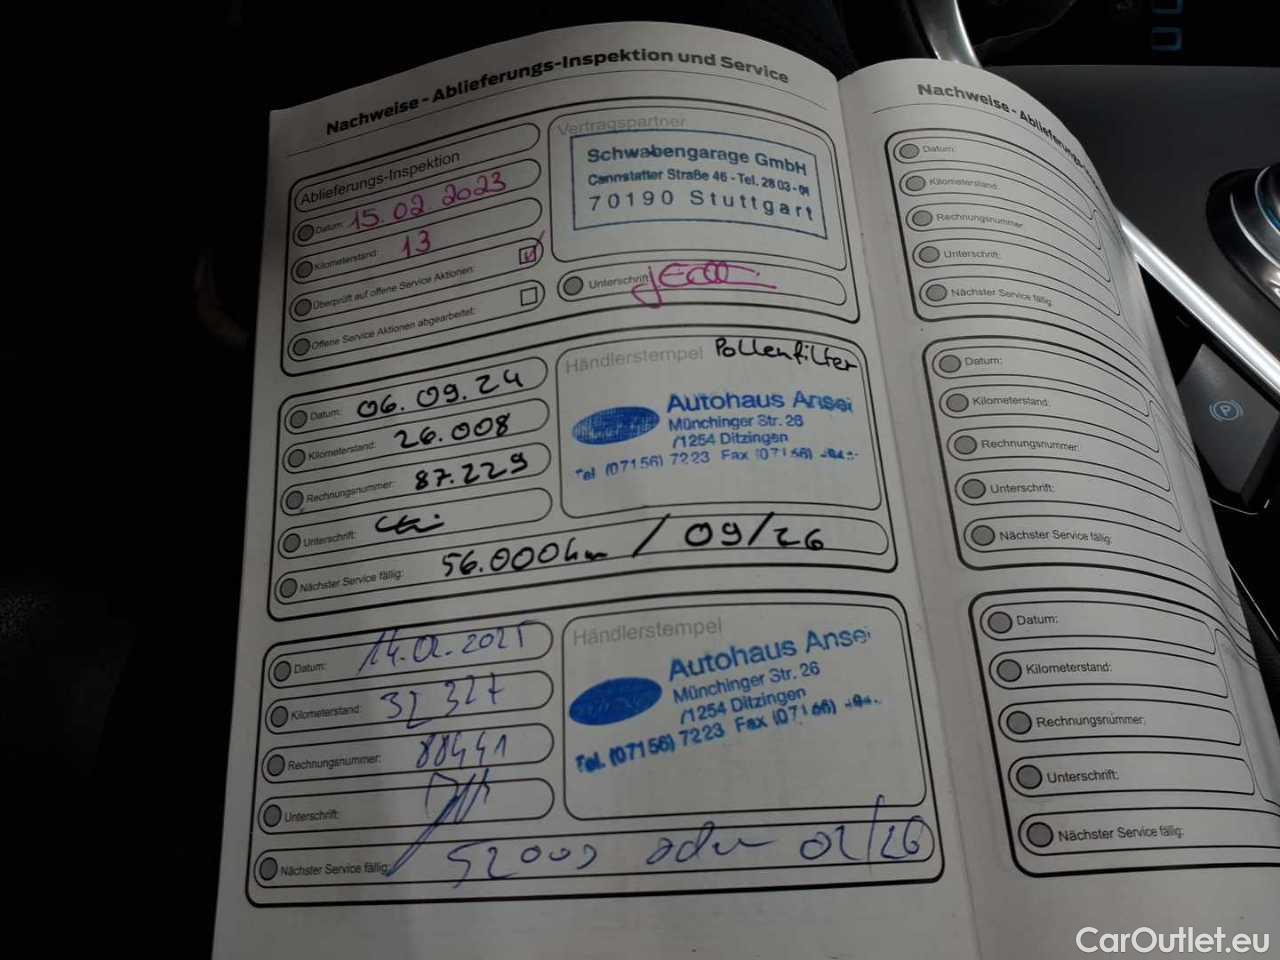 Nachweise - Ablieferungs-Inspektion und Service
Ablieferungs-Inspektion
Datum: 15.02.2023
Kilometerstand: 13
Überprüft auf offene Service Aktionen:
Offene Service Aktionen abgearbeitet:
Vertragspartner
Schwabengarage GmbH
Cannstatter Straße 46 - Tel. 28 03 -
70190 Stuttgart
Unterschrift:
Datum: 06.09.24
Kilometerstand: 26.008
Rechnungsnummer: 87.229
Unterschrift:
Nächster Service fällig: 56.000km / 09/26
Händlerstempel Pollenfilter
Autohaus Ansel
Münchinger Str. 26
71254 Ditzingen
Tel (07156) 7223 Fax (07156)
Datum: 14.02.2025
Kilometerstand: 32 327
Rechnungsnummer: 88441
Unterschrift:
Nächster Service fällig: 52000 oder 02/26
Händlerstempel
Autohaus Ansel
Münchinger Str. 26
71254 Ditzingen
Tel. (07156) 7223 Fax (07156)
Nachweise - Ablieferungs
Datum:
Kilometerstand:
Rechnungsnummer
Unterschrift:
Nächster Service fällig:
Datum:
Kilometerstand:
Rechnungsnummer:
Unterschrift:
Nächster Service fällig:
Datum:
Kilometerstand:
Rechnungsnummer:
Unterschrift:
Nächster Service fällig:
P
CarOutlet.eu